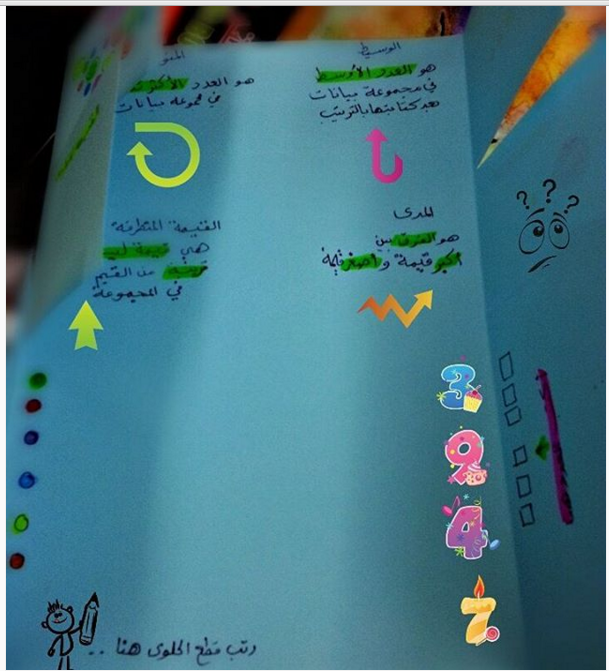 الوسيط
هو العدد الأوسط
في مجموعة بيانات
بعد كتابتها بالترتيب
هو العدد الأكثر
في مجموعة بيانات
المدى
هو الفرق بين
أكبر قيمة و أصغر قيمة
القيمة المتطرفة
هي قيمة
من القيم
في المجموعة
3
9
4
7
رتب قطع الحلوى هنا ..
? ? ?